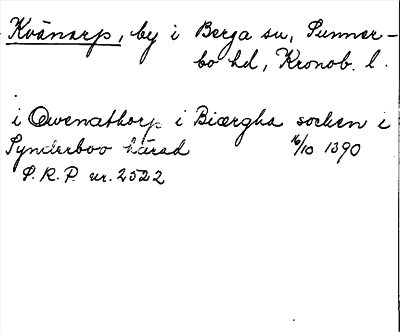 Kvänarp, by i Berga sn, Sunner-
bo hd, Kronob. l.
i Qwenathorp i Biærgha socken i
Synderboo härad 16/10 1390
S.R.P. nr. 2522